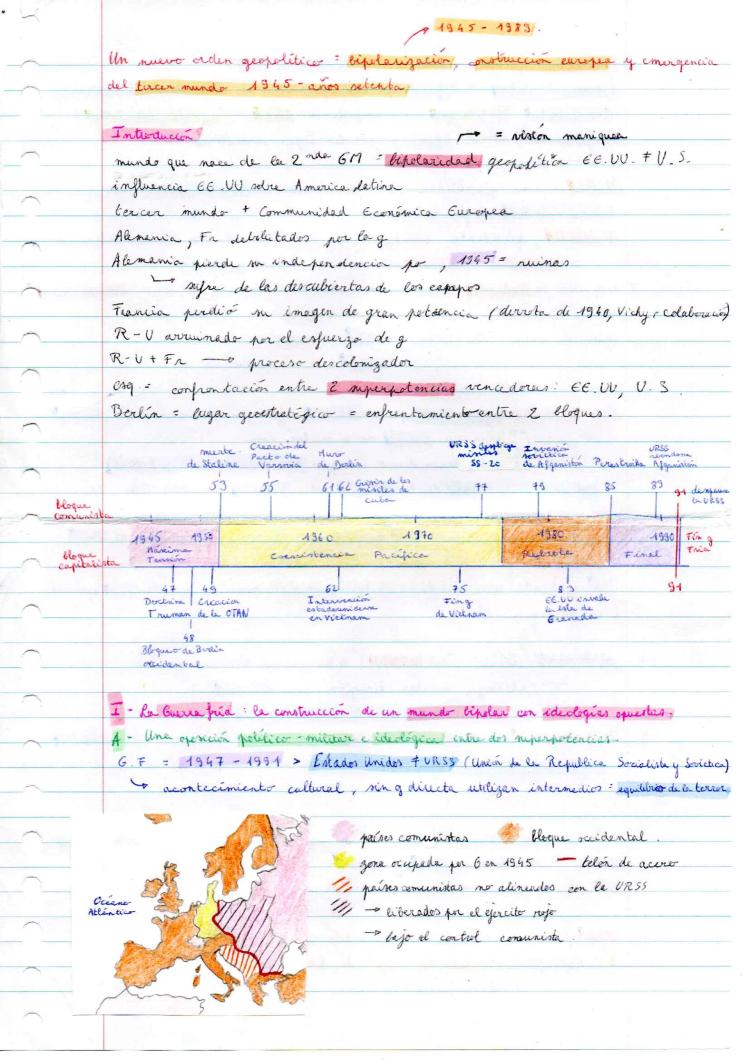 1945 - 1989.
Un nuevo orden geopolítico = bipolarización, construcción europea y emergencia
del tercer mundo 1945 - años setenta
Introducción
= visión maniquea
mundo que nace de la 2 nda GM = bipolaridad geopolítica EE.UU. ≠ U.S.
influencia EE.UU sobre America latina
tercer mundo + Communidad Económica Europea
Alemania, Fr debilitados por la g
Alemania pierde su independencia po, 1945 = ruinas
↳ sufre de las descubiertas de los campos
Francia perdió su imagen de gran potencia (derrota de 1940, Vichy, colaboración)
R-U arruinado por el esfuerzo de g
R-U + Fr → proceso descolonizador
esq = confrontación entre 2 superpotencias vencedoras: EE.UU, U.S.
Berlín = lugar geoestratégico = enfrentamiento entre 2 bloques.
muerte de Staline
Creación del Pacto de Varsovia
Muro de Berlín
Crisis de los misiles de Cuba
URSS despliega misiles SS-20
Invasión soviética de Afganistán
Perestroika
URSS abandona Afganistán
53 55 61 62 77 79 85 89 91 desaparece la URSS
bloque comunista
1945 1953 1960 1970 1980 1990
Máxima Tensión
Coexistencia Pacífica
Rebrote
Final
Fin g Fria
bloque capitalista
47 49 62 75 83 91
Doctrina Truman
Creacion de la OTAN
Intervención estadounidense en Vietnam
Fin g de Vietnam
EE.UU invade la isla de Granada
48
Bloqueo de Berlin occidental
I - La Guerra fría : la construcción de un mundo bipolar con ideologías opuestas.
A - Una oposición político-militar e ideológica entre dos superpotencias.
G.F = 1947 - 1991 > Estados Unidos ≠ URSS (Unión de la Republica Socialista y Sovietica)
↳ acontecimiento cultural, sin g directa utilizan intermedios = equilibrio de la terror
Océano Atlántico
países comunistas
bloque occidental.
zona ocupada por G en 1945
telón de acero
países comunistas no alineados con la URSS
→ liberados por el ejercito rojo
→ bajo el control comunista.